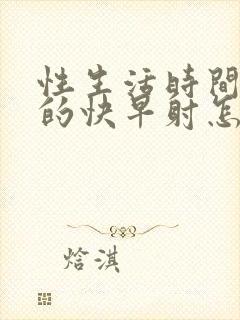 性生活時間
的快早射怎
焓淇